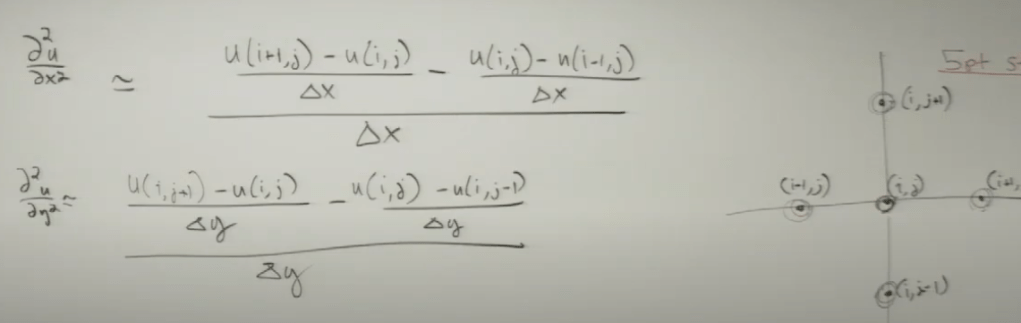 ∂²u/∂x² ≃ ((u(i+1,j) - u(i,j))/Δx - (u(i,j) - u(i-1,j))/Δx)/Δx
∂²u/∂y² ≃ ((u(i,j+1) - u(i,j))/Δy - (u(i,j) - u(i,j-1))/Δy)/Δy
5pt s
(i,j+1)
(i-1,j) (i,j) (i+1,
(i,j-1)